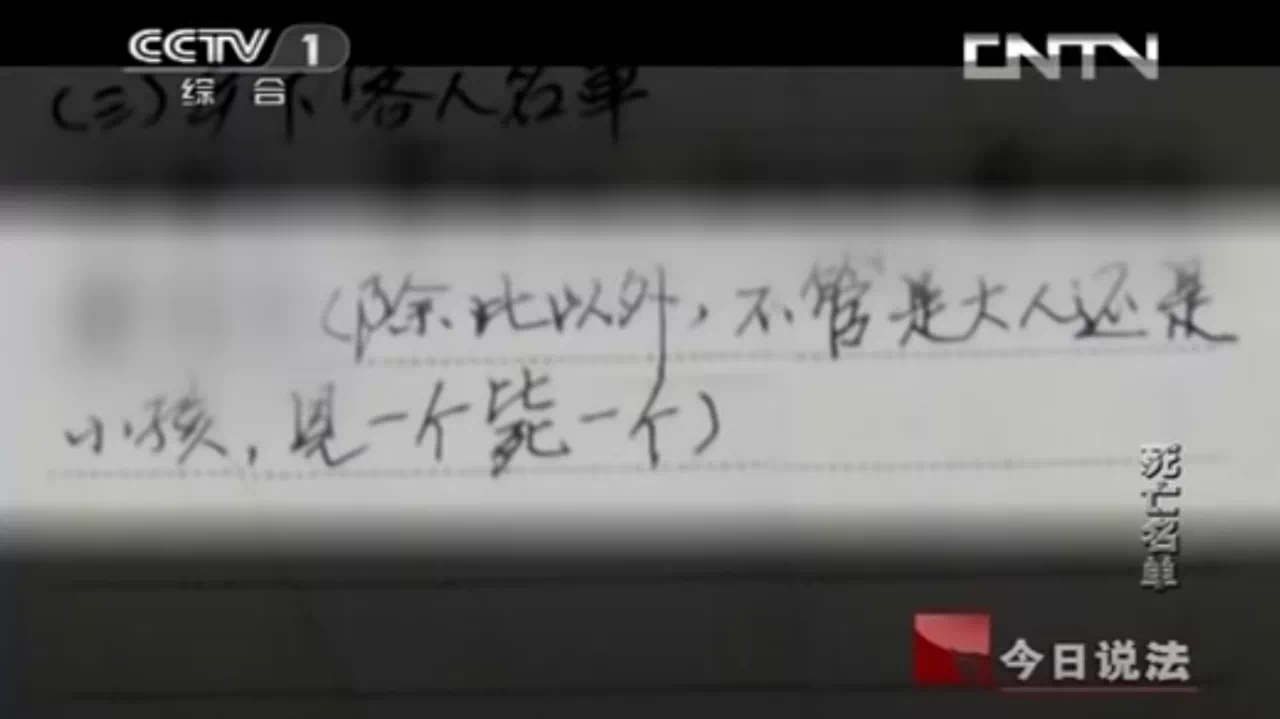 CCTV 1
综合
CNTV
(三)年下客人名单
(除此以外,不管是大人还是
小孩,见一个毙一个)
死亡名单
今日说法